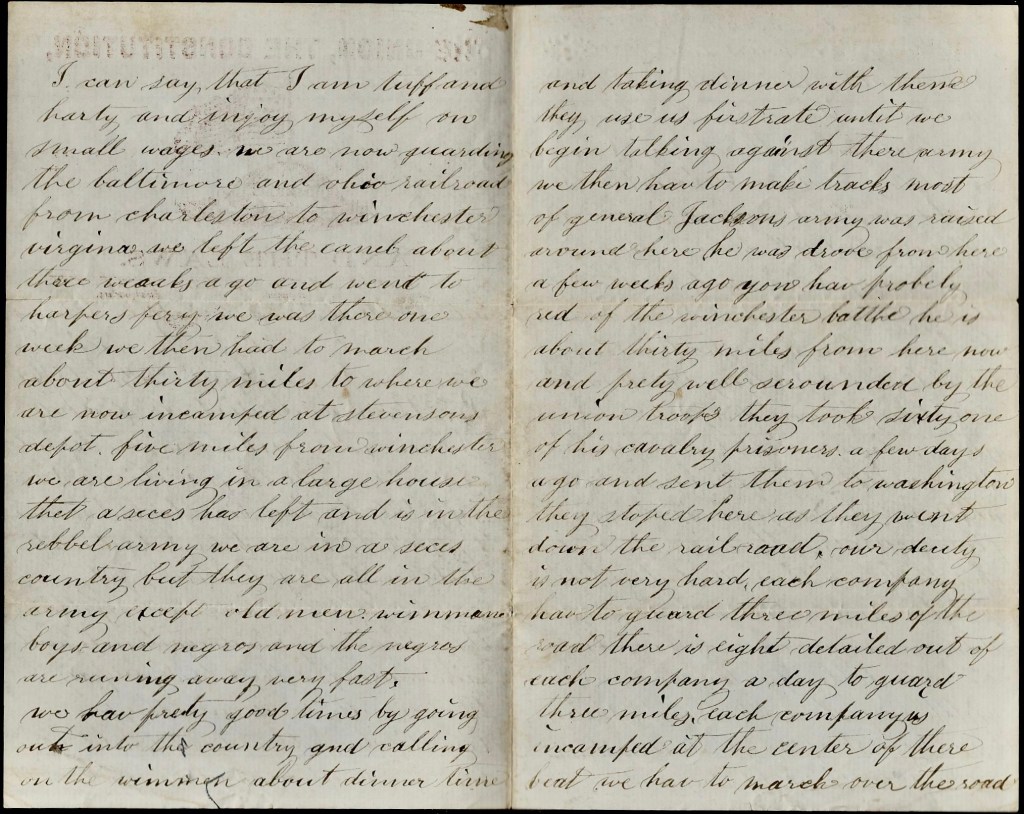 I can say that I am tuff and
harty and injoy my self on
small wages. we are now guarding
the baltimore and ohio railroad
from charleston to winchester
virgina we left the canel about
three weaks a go and went to
harpers fery we was there one
week we then had to march
about thirty miles to where we
are now incamped at stevensons
depot. five miles from winchester
we are living in a large house
thet a seces has left and is in the
rebbel army we are in a seces
country but they are all in the
army except old men. wimman
boys and negros and the negros
are runing away very fast.
we hav prety good times by going
out into the country and calling
on the wimmen about dinner time
and taking dinner with them
they use us firstrate until we
begin talking against there army
we then hav to make tracks most
of general Jacksons army was raised
around here he was drove from here
a few weeks ago you hav probely
red of the winchester battle he is
about thirty miles from here now
and prety well serounded by the
union troops they took sixty one
of his cavalry prisoners. a few days
ago and sent them to washington
they stoped here as they went
down the rail road. our deuty
is not very hard. each company
hav to guard three miles of the
road there is eight detailed out of
each company a day to guard
three miles. each company is
incamped at the center of there
beat we hav to march over the road
THE UNION, THE CONSTITUTION,